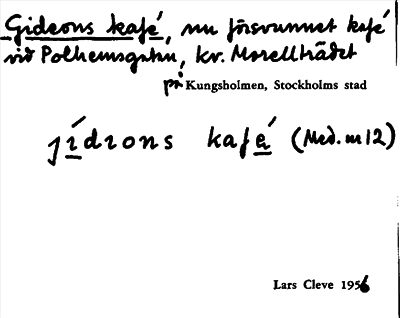 Gideons kafé, nu försvunnet kafé
vid Polhemsgatan, kv. Morellträdet
på Kungsholmen, Stockholms stad
jídıons kafé (Med. m 12)
Lars Cleve 1956